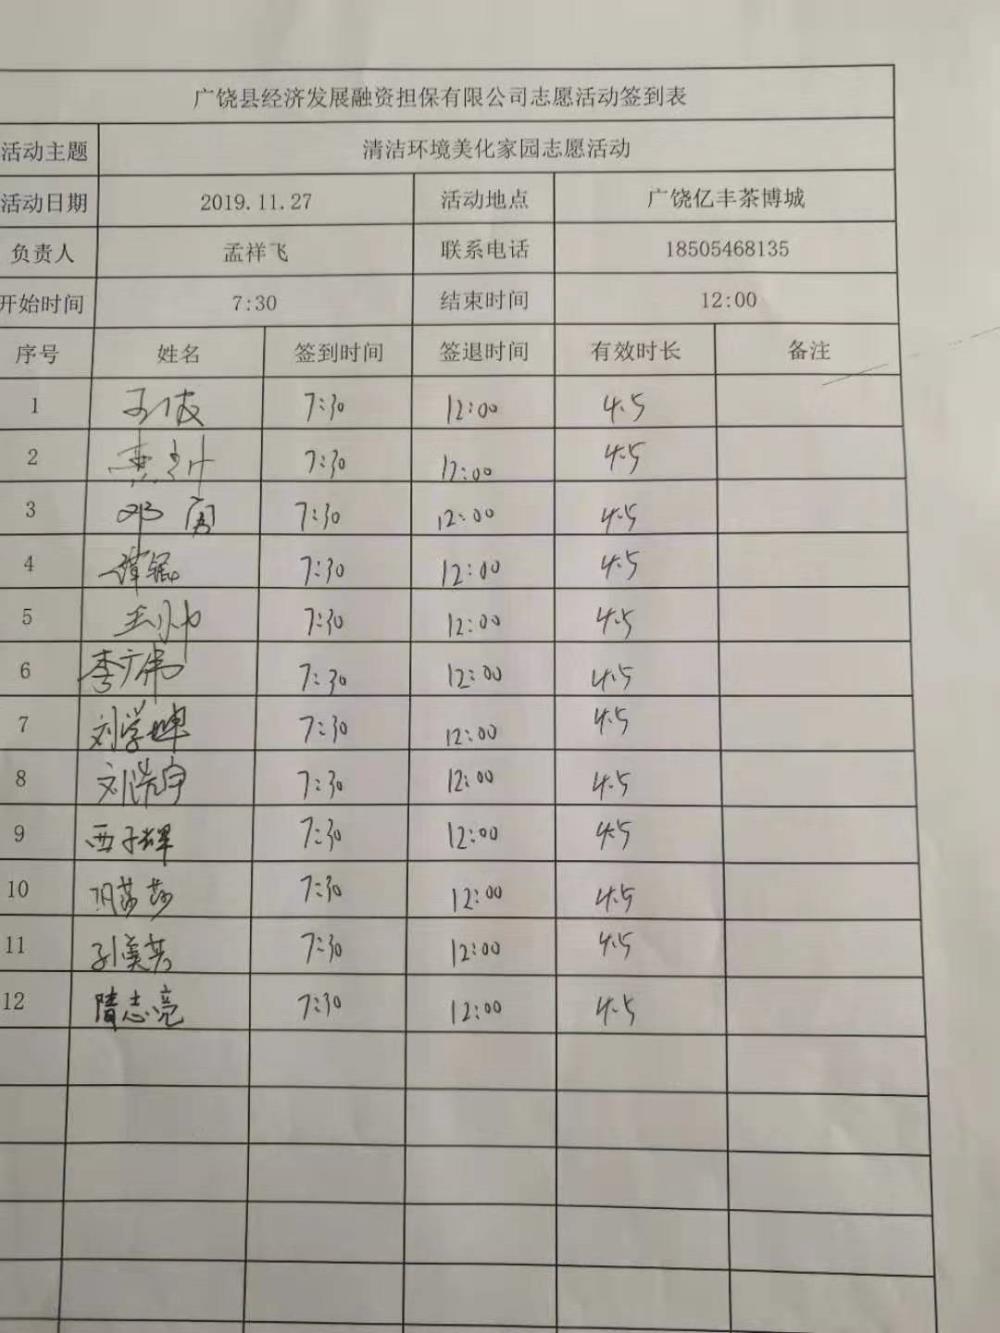 广饶县经济发展融资担保有限公司志愿活动签到表
活动主题 清洁环境美化家园志愿活动
活动日期 2019.11.27 活动地点 广饶亿丰茶博城
负责人 孟祥飞 联系电话 18505468135
开始时间 7:30 结束时间 12:00
序号 姓名 签到时间 签退时间 有效时长 备注
1 7:30 12:00 4.5
2 7:30 12:00 4.5
3 邓 7:30 12:00 4.5
4 7:30 12:00 4.5
5 王帅 7:30 12:00 4.5
6 李广伟 7:30 12:00 4.5
7 刘学坤 7:30 12:00 4.5
8 刘浩宇 7:30 12:00 4.5
9 西子辉 7:30 12:00 4.5
10 7:30 12:00 4.5
11 7:30 12:00 4.5
12 隋志亮 7:30 12:00 4.5